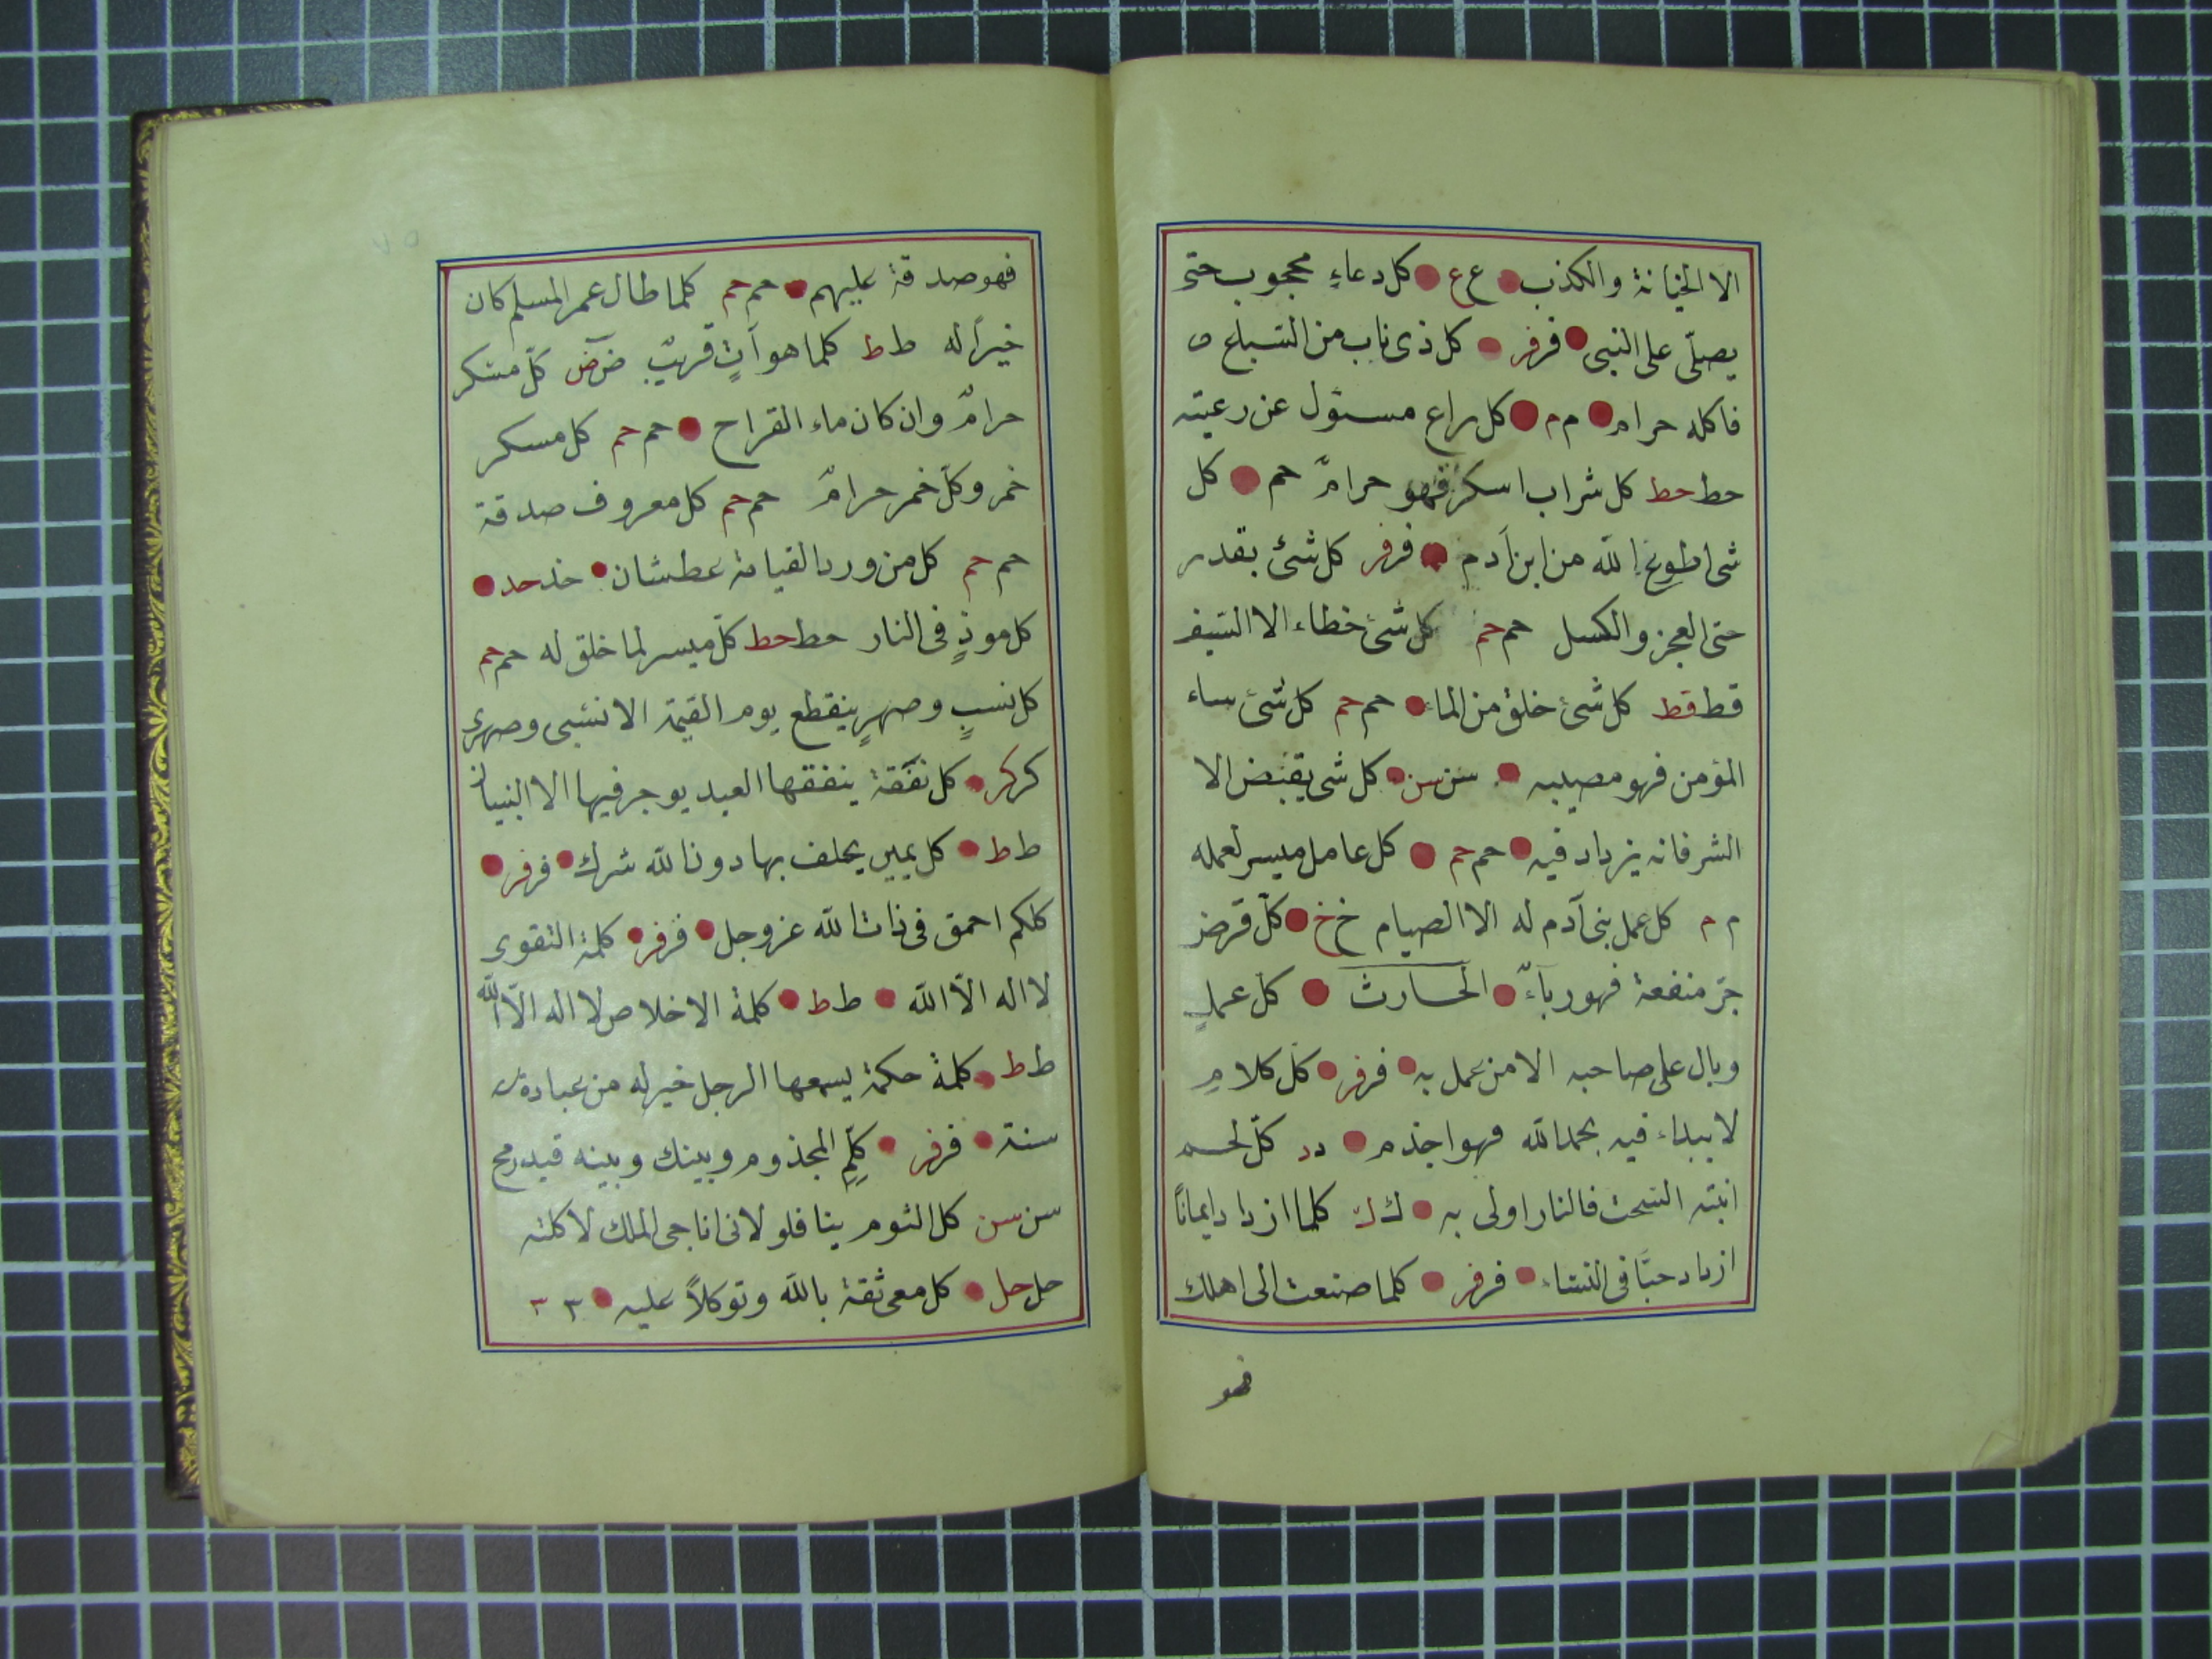 الا الخيانة والكذب ع ع كل دعاءٍ محجوب حتى
يصلّى على النبى فر فر كل ذى ناب من السباع
فاكله حرام م م كل راع مسئول عن رعيته
حط حط كل شراب اسكر فهو حرامٌ حم كل
شى اطوع لله من ابن آدم فر فر كل شئ بقدر
حتى العجز والكسل حم حم كل شئ خطاء الا السيف
قط قط كل شئ خلق من الماء حم حم كل شئ ساء
المؤمن فهو مصيبه سن سن كل شى يقبض الا
الشر فانه يزداد فيه حم حم كل عامل ميسر لعمله
م م كل عمل بنى آدم له الا الصيام خ خ كلّ قرض
جرّ منفعة فهو رباءٌ الحارث كل عملٍ
وبال على صاحبه الا من عمل به فر فر كل كلامٍ
لا يبداء فيه بحمد الله فهو اجذم د د كلّ لحم
انبته السحت فالنار اولى به ك ك كلما ازداد ايمانًا
ازداد حبًا فى النساء فر فر كلما صنعت الى اهلك
فهو
فهو صدقة عليهم حم حم كلما طال عمر المسلم كان
خيرًا له ط ط كلما هو آتٍ قريبٌ ض ض كلّ مسكر
حرامٌ وان كان ماء القراح حم حم كل مسكر
خمر وكل خمر حرامٌ حم حم كل معروف صدقة
حم حم كل من ورد القيامة عطشان خد حد
كل موذٍ فى النار حط حط كلّ ميسر لما خلق له حم حم
كل نسبٍ وصهرٍ ينقطع يوم القيمة الا نسبى وصهرى
كر كر كل نفقة ينفقها العبد يوجر فيها الا البنيان
ط ط كل يمين يحلف بها دون الله شرك فر فر
كلكم احمق فى ذات الله عز وجل فر فر كلمة التقوى
لا اله الّا الله ط ط كلمة الاخلاص لا اله الّا الله
ط ط كلمة حكمة يسمعها الرجل خير له من عبادة
سنة فر فر كلّمِ المجذوم وبينك وبينه قيد رمح
سن سن كل الثوم ينا فلو لا نى اناجى الملك لاكلته
حل حل كل معى ثقة بالله وتوكلاً عليه ٣ ٣